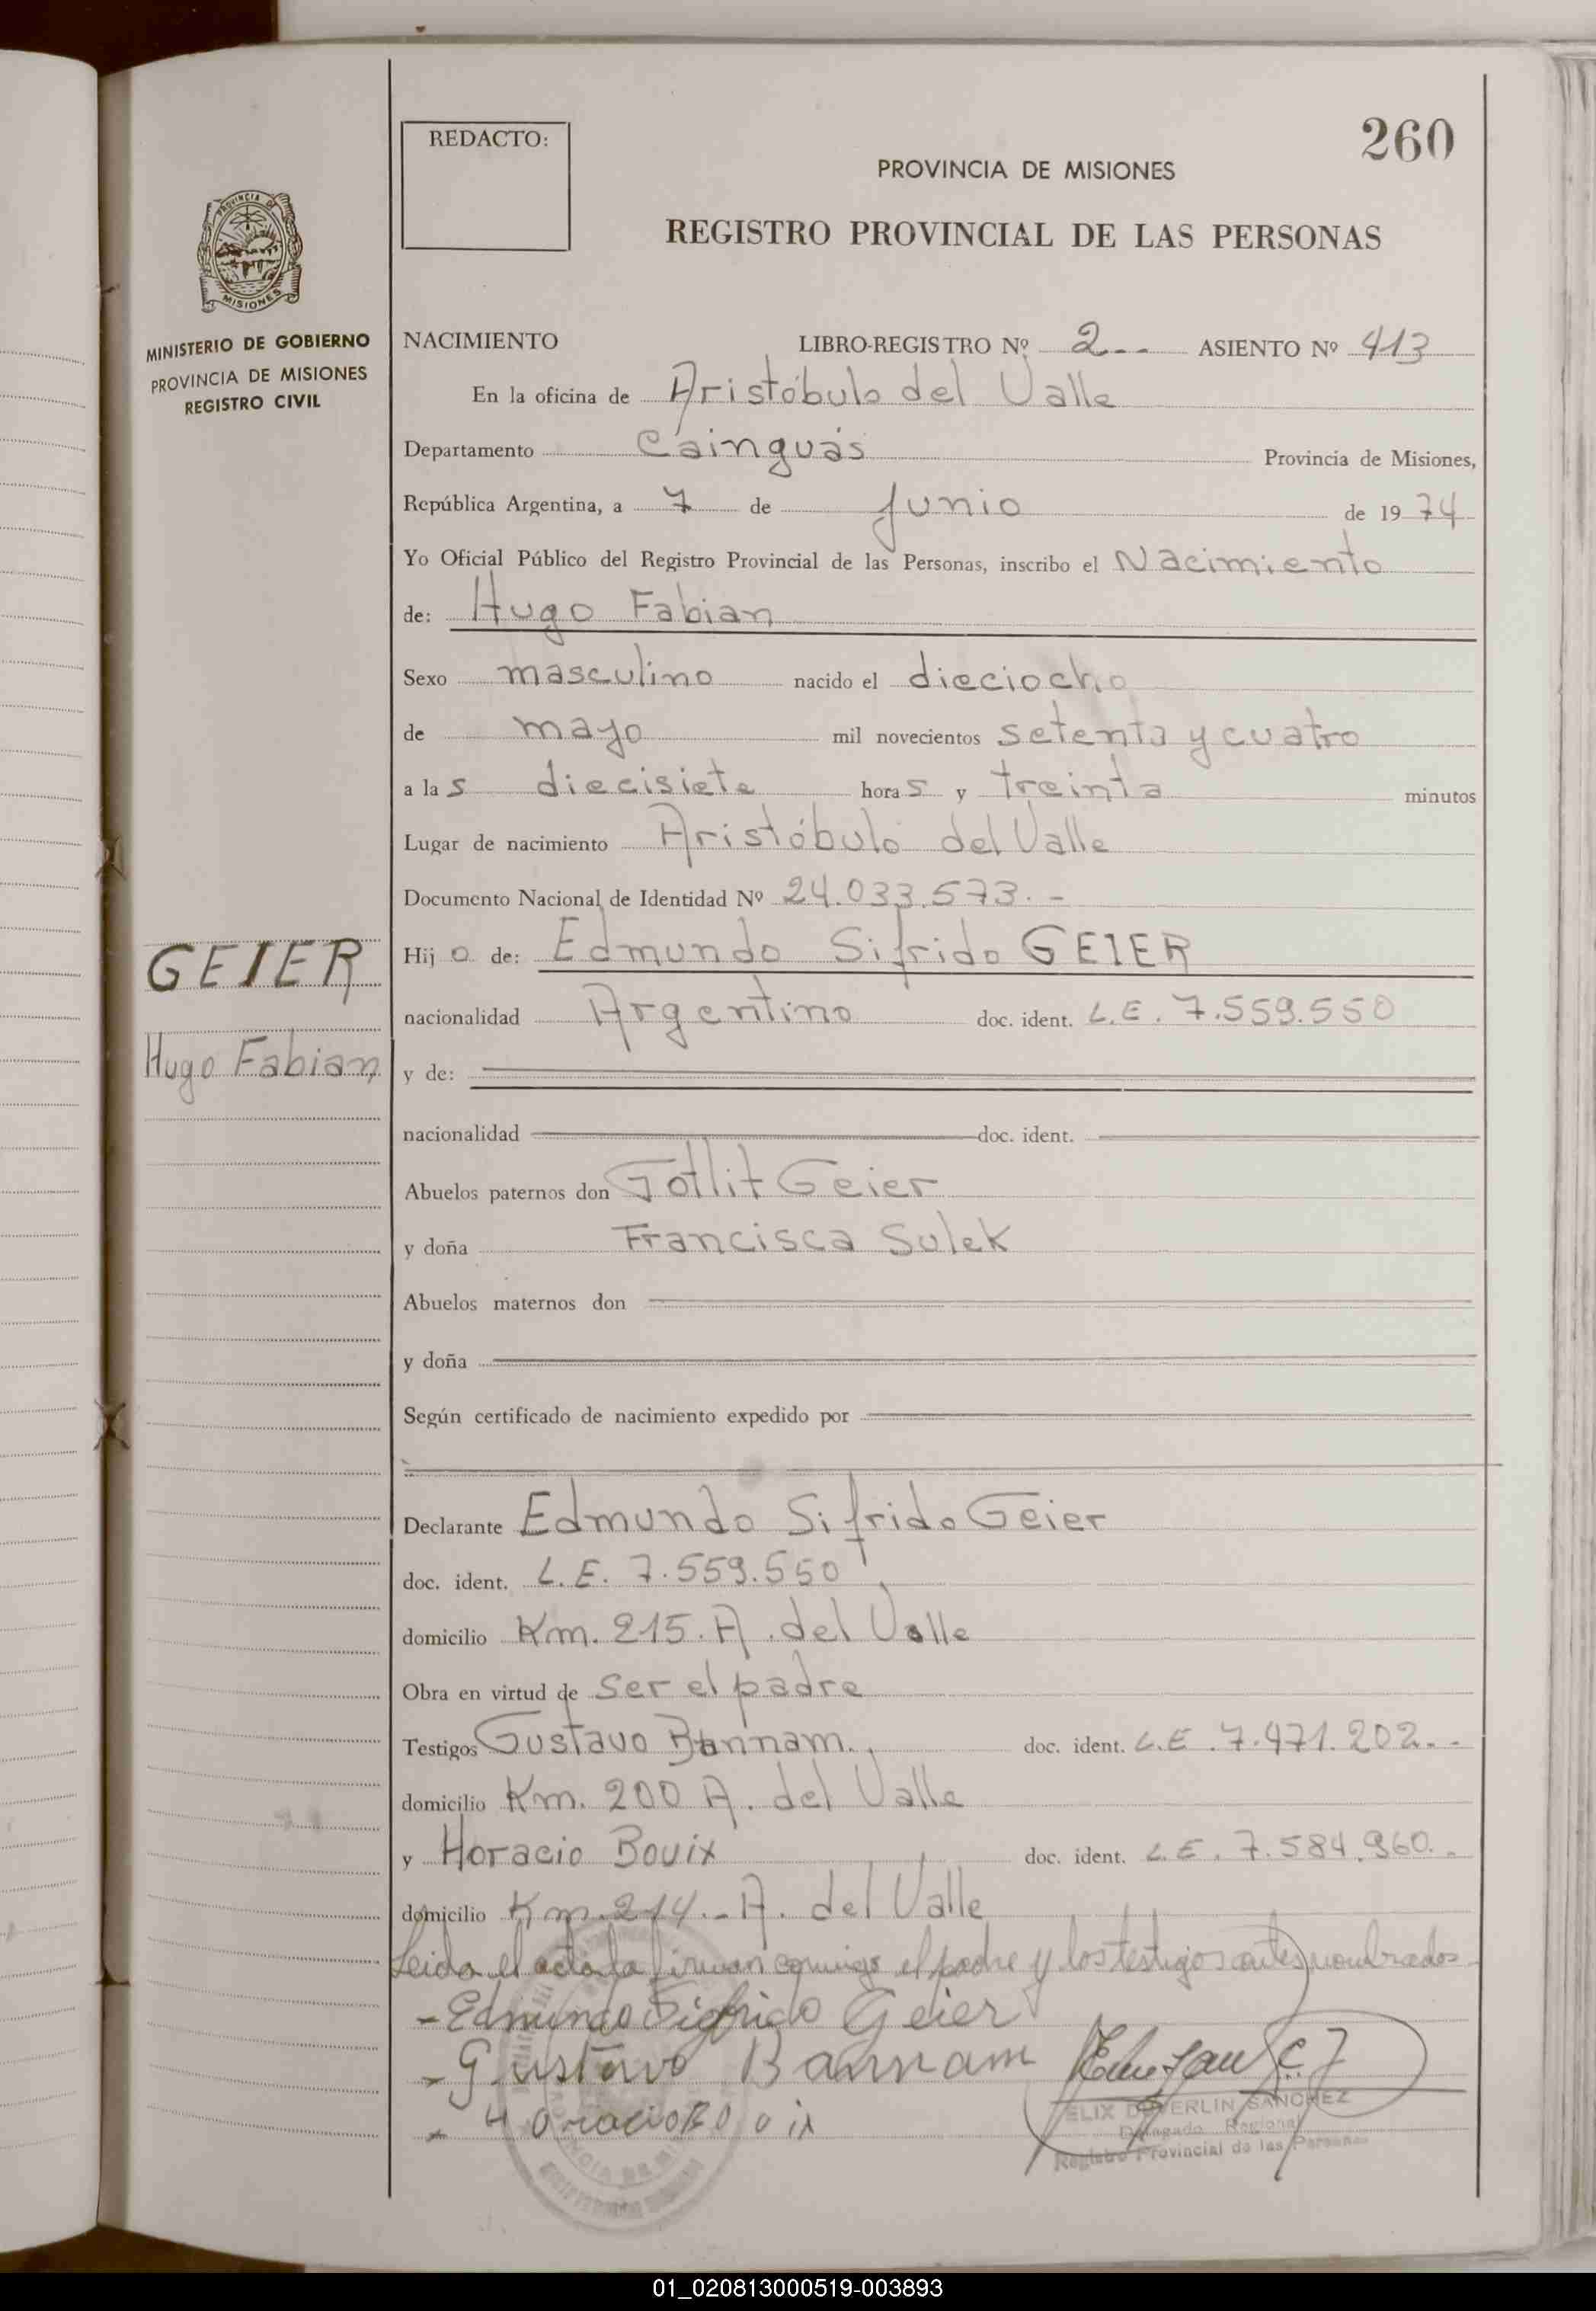 260
REDACTO:
PROVINCIA DE MISIONES
REGISTRO PROVINCIAL DE LAS PERSONAS
PROVINCIA DE
MISIONES
MINISTERIO DE GOBIERNO
PROVINCIA DE MISIONES
REGISTRO CIVIL
NACIMIENTO LIBRO-REGISTRO Nº 2-- ASIENTO Nº 413
En la oficina de Aristóbulo del Valle
Departamento Cainguás Provincia de Misiones,
República Argentina, a 7 de Junio de 1974
Yo Oficial Público del Registro Provincial de las Personas, inscribo el Nacimiento
de: Hugo Fabian
Sexo masculino nacido el dieciocho
de mayo mil novecientos setenta y cuatro
a las diecisiete horas y treinta minutos
Lugar de nacimiento Aristóbulo del Valle
Documento Nacional de Identidad Nº 24.033.573.-
GEIER
Hugo Fabian
Hijo de: Edmundo Sifrido GEIER
nacionalidad Argentino doc. ident. L.E. 7.559.550
y de:
nacionalidad doc. ident.
Abuelos paternos don Gotlit Geier
y doña Francisca Sulek
Abuelos maternos don
y doña
Según certificado de nacimiento expedido por
Declarante Edmundo Sifrido Geier
doc. ident. L.E. 7.559.550
domicilio Km. 215. A. del Valle
Obra en virtud de ser el padre
Testigos Gustavo Bannam. doc. ident. L.E. 7.471.202.-
domicilio Km. 200 A. del Valle
y Horacio Bouix doc. ident. L.E. 7.584.960.
domicilio Km. 214.- A. del Valle
Leida el acta la firman conmigo el padre y los testigos antes nombrados
- Edmundo Sigfrido Geier
- Gustavo Bannam
- Horacio Bouix
SANCHEZ
Delegado Regional
Registro Provincial de las Personas
01_020813000519-003893